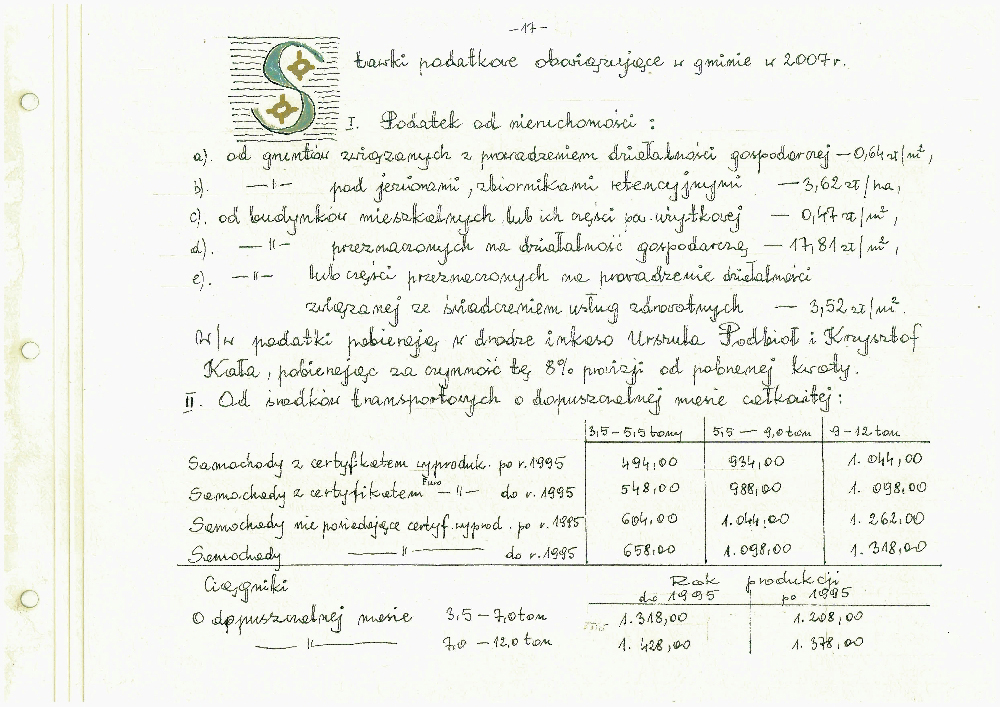 -17-
Stawki podatkowe obowiązujące w gminie w 2007r.
I. Podatek od nieruchomości :
a). od gruntów związanych z prowadzeniem działalności gospodarczej – 0,64 zł/m²,
b). —"— pod jeziorami, zbiornikami retencyjnymi – 3,62 zł/ha,
c). od budynków mieszkalnych lub ich części pow. użytkowej – 0,47 zł/m²,
d). —"— przeznaczonych na działalność gospodarczą – 17,81 zł/m²,
e). —"— lub części przeznaczonych na prowadzenie działalności
związanej ze świadczeniem usług zdrowotnych – 3,52 zł/m².
W/w podatki pobierają w drodze inkaso Urszula Podbioł i Krzysztof
Kała, pobierając za czynność tę 8% prowizji od pobranej kwoty.
II. Od środków transportowych o dopuszczalnej masie całkowitej :
3,5–5,5 tony 5,5 — 9,0 ton 9–12 ton
Samochody z certyfikatem wyproduk. po r. 1995 494,00 934,00 1.044,00
Samochody z certyfikatem Euro —"— do r. 1995 548,00 988,00 1.098,00
Samochody nie posiadające certyf. wyprod. po r. 1995 604,00 1.044,00 1.262,00
Samochody —"— do r. 1995 658,00 1.098,00 1.318,00
Ciągniki Rok produkcji
do 1995 po 1995
O dopuszczalnej masie 3,5 – 7,0 ton 1.318,00 1.208,00
—"— 7,0 – 12,0 ton 1.428,00 1.378,00